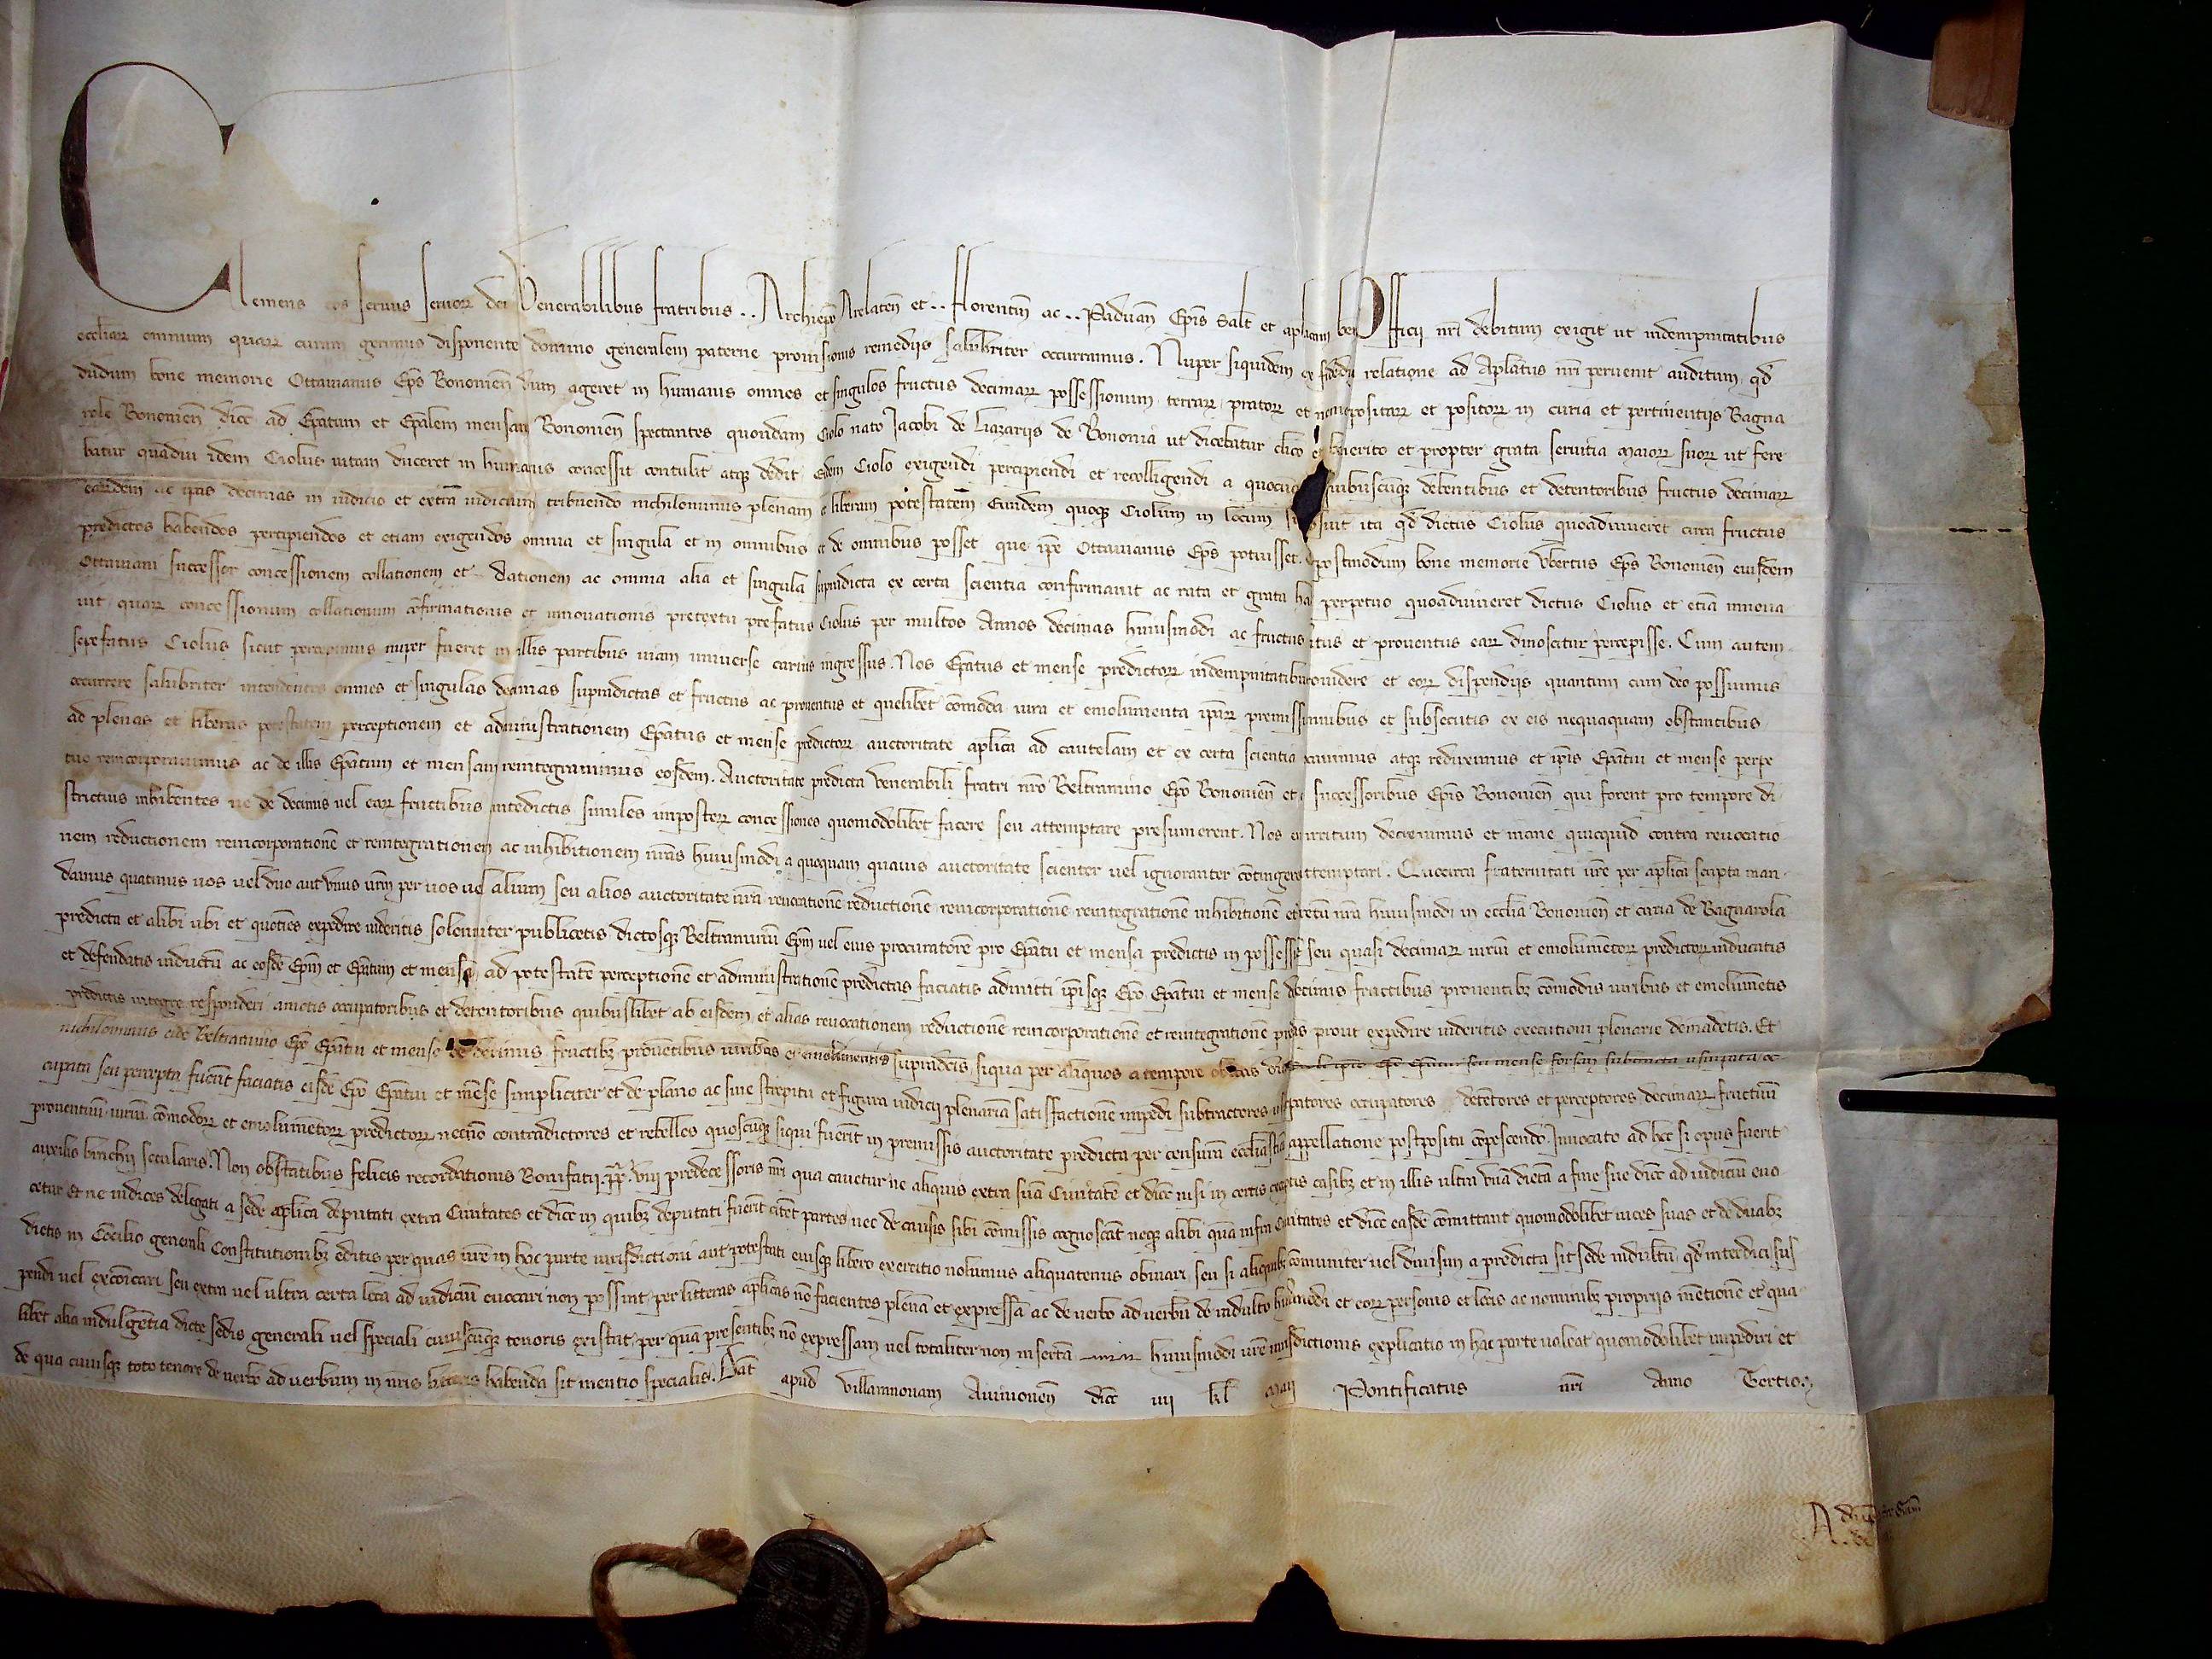 Clemens eps seruus seruoꝝ dei Venerabilibus fratribus . . Archiepo Arelaten̄ et . . Florentin̄ ac . . Paduan̄ Epīs Salt̄ et aplicam ben̄ Officij nr̄i debitum exigit ut indempnitatibus
eccl̄iaꝝ omnium quaꝝ curam gerimus disponente domino generalem paterne prouisionis remedijs salubriter occurramus . Nuper siquidem ex fidedig relatione ad Aplatus nr̄i peruenit auditum qd̄
dudum bone memorie Ottauianus Ep̄s Bononien̄ dum ageret in humanis omnes et singulos fructus decimaꝝ possessionum terraꝝ pratoꝝ et positaꝝ et positoꝝ in curia et pertinentijs Bagna
role Bononien̄ dioc̄ ad Ep̄atum et Ep̄alem mensam Bononien̄ spectantes quondam Ciolo nato Jacobi de Liazarijs de Bononia ut dicebatur clico et benerito et propter grata seruitia maioꝝ suoꝝ ut fere
batur quadiu idem Ciolus uitam duceret in humanis concessit contulit atqꝫ dedit eidem Ciolo exigendi percipiendi et recolligendi a quocūqꝫ quibuscūqꝫ debentibus et detentoribus fructus decimaꝝ
earūdem ac ipas decimas in iudicio et extra iudicium tribuendo nichilominus plenam et liberam potestatem Eundem quoqꝫ Ciolum in locum suū posuit ita qd̄ dictus Ciolus quoaduiueret circa fructus
predictos habendos percipiendos et etiam exigendos omnia et singula et in omnibus et de omnibus posset que ip̄e Ottauianus Ep̄s potuisset . postmodum bone memorie Vbertus Ep̄s Bononien̄ eiusdem
Ottauiani successor concessionem collationem et dationem ac omnia alia et singula supradicta ex certa scientia confirmauit ac rata et grata ha perpetuo quoaduiueret dictus Ciolus et etiā innoua
uit quaꝝ concessionum collationum cōfirmationis et innouationis pretextu prefatus Ciolus per multos Annos decimas huiusmodi ac fructus itus et prouentus eaꝝ dinoscitur percepisse . Cum autem
sepefatus Ciolus sicut percepimus nuper fuerit in illis partibus uiam uniuerse carnis ingressus . Nos Ep̄atus et mense predictoꝝ indempnitatibus prouidere et eoꝝ dispendijs quantum cum deo possumus
occurrere salubriter intendentes omnes et singulas decimas supradictas et fructus ac prouentus et quelibet cōmoda iura et emolumenta ip̄aꝝ premissis omnibus et subsecutis ex eis nequaquam obstantibus
ad plenas et liberas potestatem perceptionem et administrationem Ep̄atus et mense predictoꝝ auctoritate aplica ad cautelam et ex certa scientia reuocauimus atqꝫ reduximus et ip̄is Ep̄atui et mense perpe
tuo reincorporauimus ac de illis Ep̄atum et mensam reintegrauimus eosdem . Auctoritate predicta Venerabili fratri nr̄o Beltramino Ep̄o Bononien̄ et successoribus Ep̄is Bononien̄ qui forent pro tempore di
strictius inhibentes ne de decimis uel eaꝝ fructibus antedictis similes imposteꝝ concessiones quomodolibet facere seu attemptare presumerent . Nos enim irritum decreuimus et inane quicquid contra reuocatio
nem reductionem reincorporationē et reintegrationem ac inhibitionem nr̄as huiusmodi a quoquam quauis auctoritate scienter uel ignoranter cōtingeret attemptari . Quocirca fraternitati ur̄e per aplica scripta man
damus quatinus uos uel duo aut vnus ur̄m per uos uel alium seu alios auctoritate nr̄a reuocationē reductionē reincorporationē reintegrationē inhibitionē et decretū nr̄a huiusmodi in eccl̄ia Bononien̄ et curia de Bagnarola
predicta et alibi ubi et quotiēs expedire uideritis solenniter publicetis dictosqꝫ Beltraminū Ep̄m uel eius procuratorē pro Ep̄atu et mensa predictis in possessiōe seu quasi decimaꝝ iuriū et emolumētoꝝ predictoꝝ inducatis
et defendatis inductū ac eosdē Ep̄m et Ep̄atum et mensā ad potestatē perceptionē et administrationē predictas faciatis admitti ip̄isqꝫ Ep̄o Ep̄atui et mense de decimis fructibus prouentibꝫ cōmodis iuribus et emolumētis
predictis integre responderi amotis occupatoribus et detentoribus quibuslibet ab eisdem et alias reuocationem reductionē reincorporationē et reintegrationē predictas prout expedire uideritis executioni plenarie demādetis . Et
nichilominus eidē Beltramino Ep̄o Ep̄atui et mense de decimis fructibꝫ prouentibus iuribus et emolimentis supradictis siqua per aliquos a tempore obitus dicti Cioli ip̄is Ep̄o Ep̄atui seu mense forsan subtracta usurpata oc
cupata seu percepta fuerīt faciatis eisdē Ep̄o Ep̄atui et mēse simpliciter et de plano ac sine strepitu et figura iudicij plenariā satisfactionē impēdi subtractores usurpatores occupatores detētores et perceptores decimaꝝ fructuū
prouentuū iuriū cōmodoꝝ et emolumētoꝝ predictoꝝ necnō contradictores et rebelles quoscūqꝫ siqui fuerīt in premissis auctoritate predicta per censurā eccl̄iasticā appellatione postposita cōpescendo . Inuocato ad hoc si opus fuerit
auxilio brachij secularis . Non obstātibus felicis recordationis Bonifatij pp̄ viij predecessoris nr̄i qua cauetur ne aliquis extra suā Ciuitatē et dioc̄ nisi in certis exceptis casibꝫ et in illis ultra vnā dietā a fine sue dioc̄ ad iudiciū euo
cetur Et ne iudices delegati a sede aplica deputati extra Ciuitates et dioc̄ in quibꝫ deputati fuerīt citēt partes nec de causis sibi cōmissis cognoscāt neqꝫ alibi quā infra Ciuitates et dioc̄ easdē cōmittant quomodolibet uices suas et de duabꝫ
dietis in Cōcilio generali Constitutionibꝫ editis per quas ur̄e in hac parte iurisdictioni aut potestati eiusqꝫ libero exercitio nolumus aliquatenus obuiari seu si aliquibꝫ cōmuniter uel diuisim a predicta sit sede indultū qd̄ interdici sus
pendi uel excōicari seu extra uel ultra certa loca ad iudiciū euocari non possint per litteras aplicas nō facientes plenā et expressā ac de uerbo ad uerbū de indulto huiusmodi et eoꝝ personis et locis ac nominibꝫ proprijs mētionē et qua
libet alia indulgētia dicte sedis generali uel speciali cuiuscūqꝫ tenoris existat per quā presentibꝫ nō expressam uel totaliter non insertā huiusmodi ur̄e iurisdictionis explicatio in hac parte ualeat quomodolibet impediri et
de qua cuiusqꝫ toto tenore de uerbo ad uerbum in nr̄is litteris habenda sit mentio specialis . Dat̄ apud Villamnouam Auinionen̄ dioc̄ iiij kl̄ Maij Pontificatus nr̄i Anno Tertio